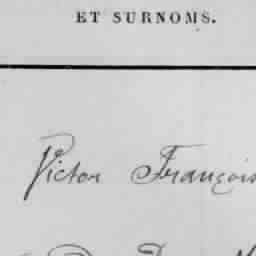 ET SURNOMS.
Victor François